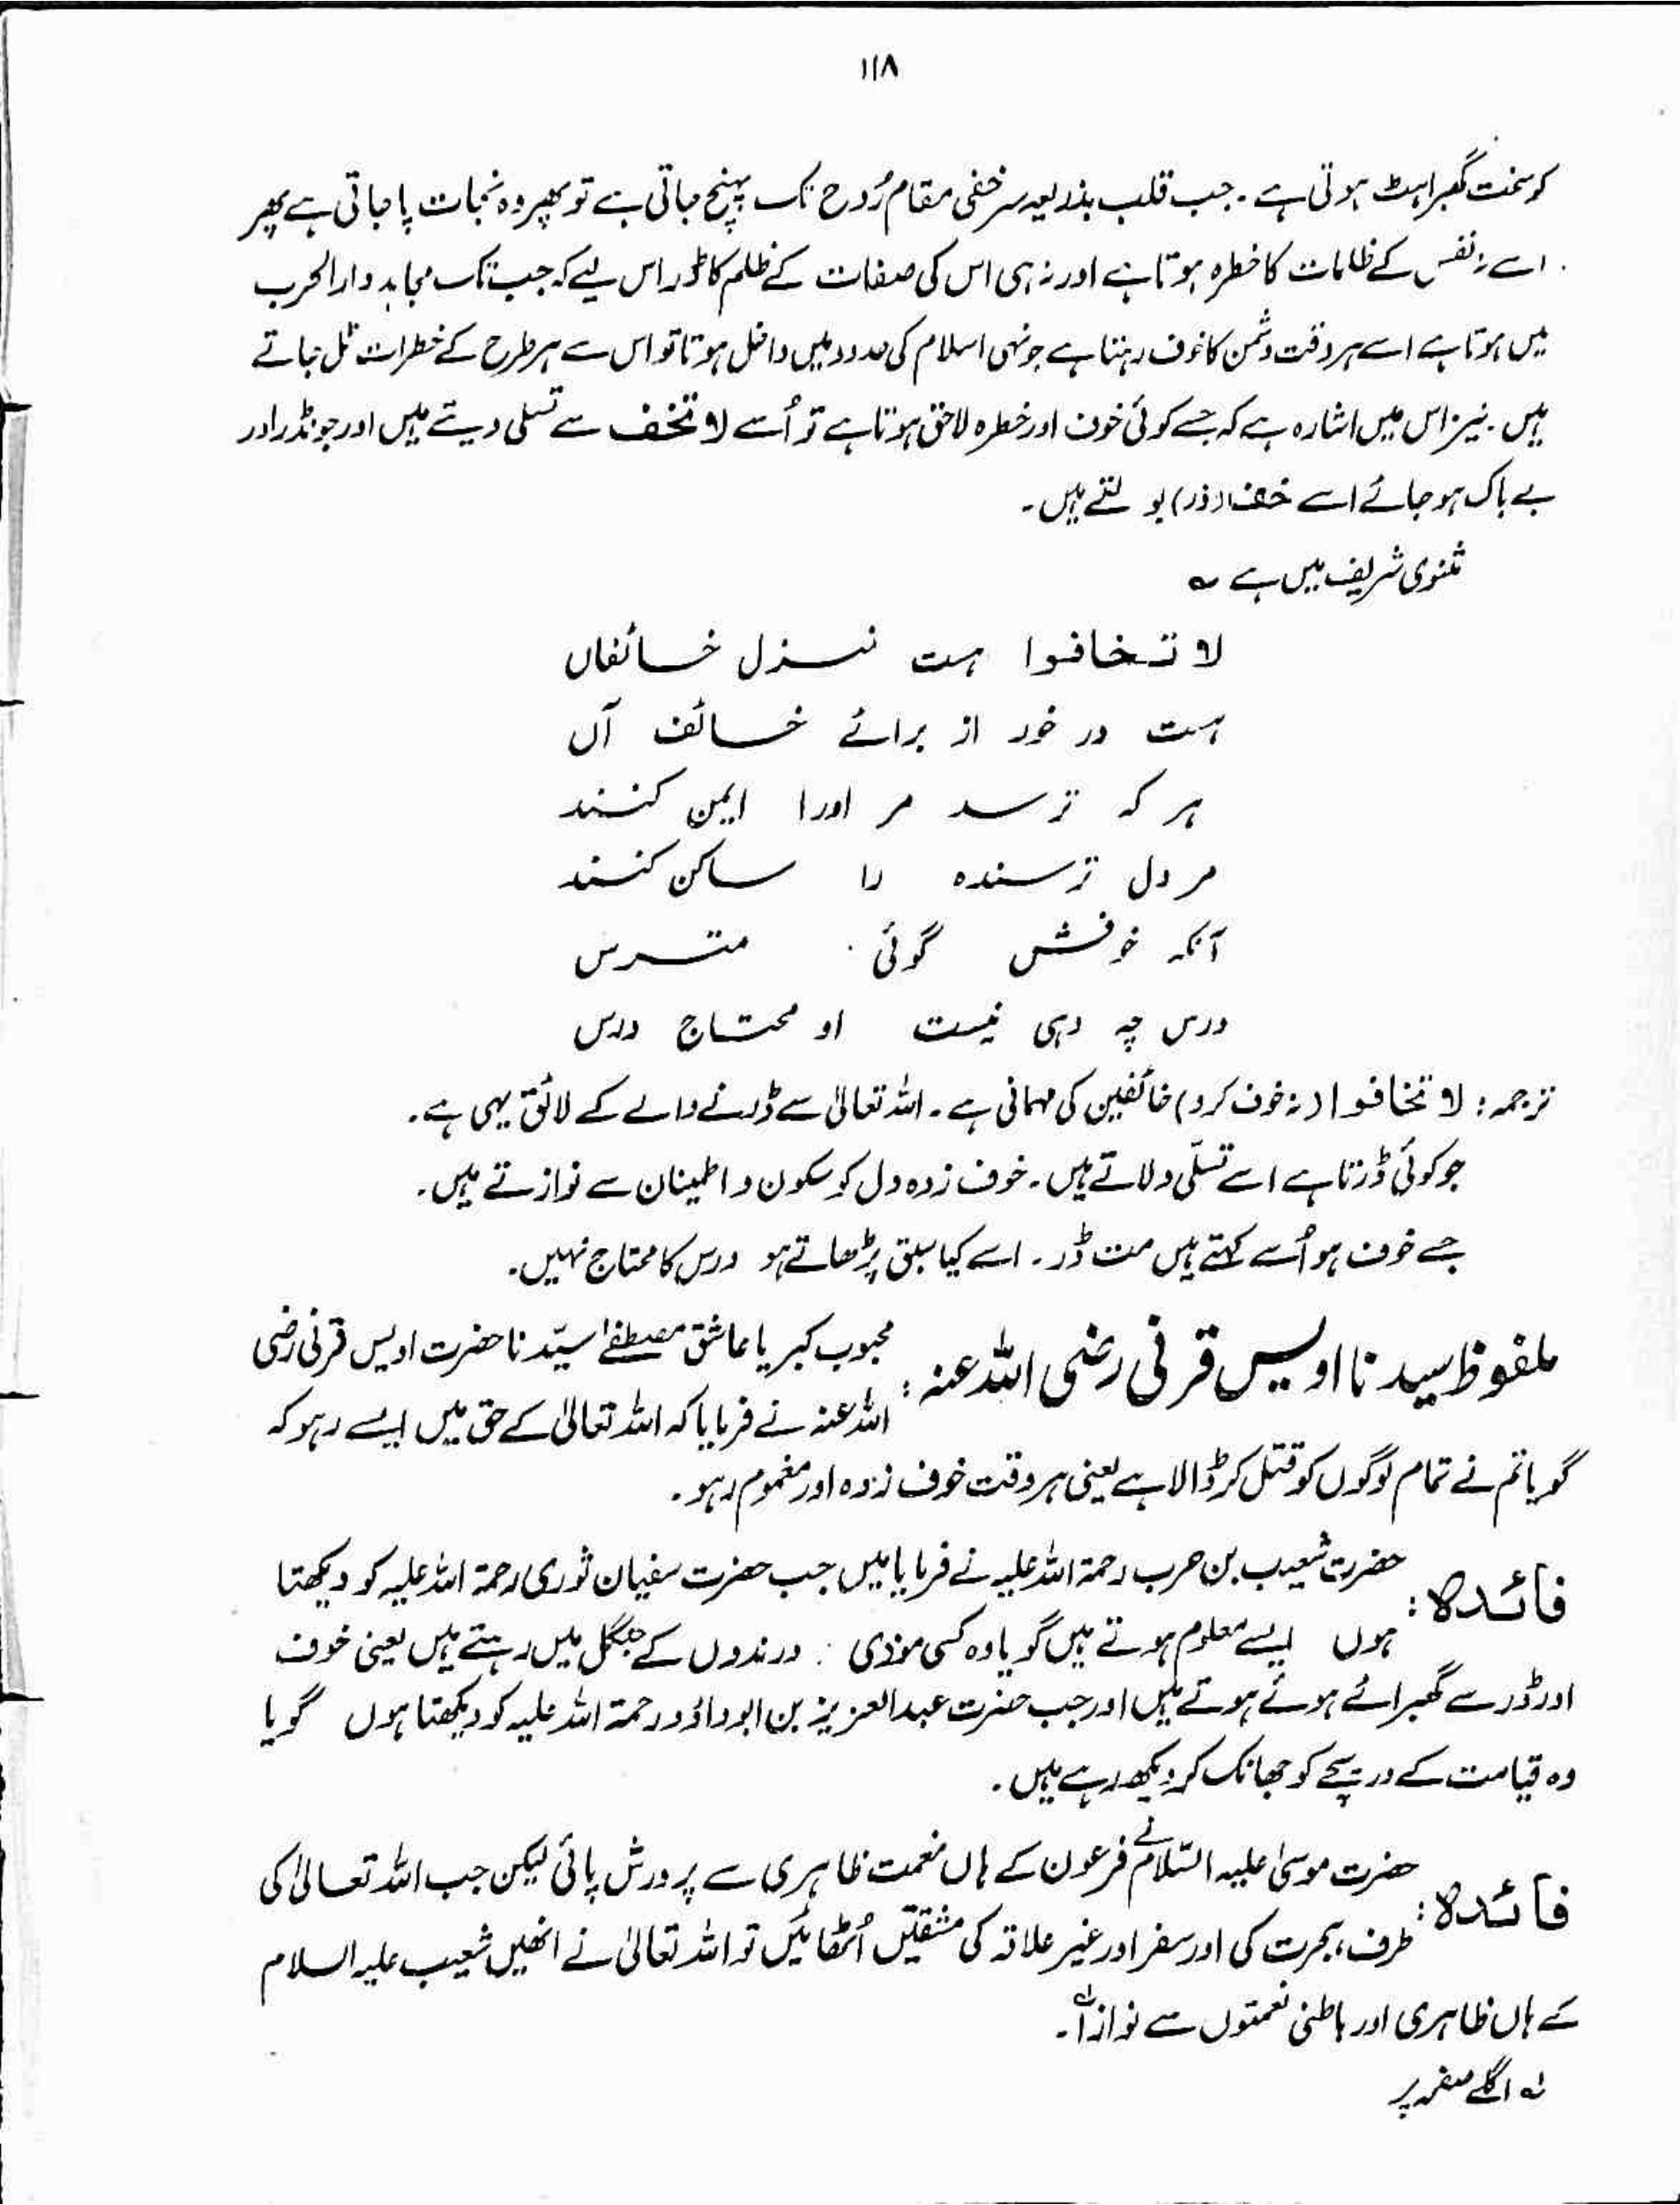 ۱۱۸
کو سخت گھبراہٹ ہوتی ہے ۔ جب قلب بذریعہ سر خفی مقام رُوح تک پہنچ جاتی ہے تو پھر وہ نجات پا جاتی ہے پھر
اسے نہ نفس کے ظلمات کا خطرہ ہوتا ہے اور نہ ہی اس کی صفات کے ظلم کا ڈر اس لیے کہ جب تک مجاہد دار الحرب
میں ہوتا ہے اسے ہر وقت دشمن کا خوف رہتا ہے جونہی اسلام کی حدود میں داخل ہوتا تو اس سے ہر طرح کے خطرات ٹل جاتے
ہیں ۔ نیز اس میں اشارہ ہے کہ جسے کوئی خوف اور خطرہ لاحق ہوتا ہے تو اُسے لا تخف سے تسلی دیتے ہیں اور جو نڈر اور
بے باک ہو جائے اسے خف (ڈر) بولتے ہیں ۔
مثنوی شریف میں ہے ؎
لا تخافوا ہست نزل خائفاں
ہست در خور از برائے خائف آں
ہر کہ ترسد مر اورا ایمن کنند
مر دل ترسندہ را ساکن کنند
آنکہ خوفش گوئی مترس
درس چہ دہی نیست او محتاج درس
ترجمہ : لا تخافوا (نہ خوف کرو) خائفین کی مہمانی ہے ۔ اللہ تعالیٰ سے ڈرنے والے کے لائق یہی ہے ۔
جو کوئی ڈرتا ہے اسے تسلّی دلاتے ہیں ۔ خوف زدہ دل کو سکون و اطمینان سے نوازتے ہیں ۔
جسے خوف ہو اُسے کہتے ہیں مت ڈر ۔ اسے کیا سبق پڑھاتے ہو درس کا محتاج نہیں ۔
ملفوظ سیدنا اویس قرنی رضی اللہ عنہ : محبوب کبریا عاشق مصطفےٰ سیّدنا حضرت اویس قرنی رضی
اللہ عنہ نے فرمایا کہ اللہ تعالیٰ کے حق میں ایسے رہو کہ
گویا تم نے تمام لوگوں کو قتل کر ڈالا ہے یعنی ہر وقت خوف زدہ اور مغموم رہو ۔
فائدہ : حضرت شعیب بن حرب رحمۃ اللہ علیہ نے فرمایا میں جب حضرت سفیان ثوری رحمۃ اللہ علیہ کو دیکھتا
ہوں ایسے معلوم ہوتے ہیں گویا وہ کسی موذی درندوں کے جنگل میں رہتے ہیں یعنی خوف
اور ڈر سے گھبرائے ہوئے ہوتے ہیں اور جب حضرت عبد العزیز بن ابو داؤد رحمۃ اللہ علیہ کو دیکھتا ہوں گویا
وہ قیامت کے دریچے کو جھانک کر دیکھ رہے ہیں ۔
فائدہ : حضرت موسیٰ علیہ السّلام نے فرعون کے ہاں نعمت ظاہری سے پرورش پائی لیکن جب اللہ تعالیٰ کی
طرف ہجرت کی اور سفر اور غیر علاقہ کی مشقتیں اُٹھائیں تو اللہ تعالیٰ نے انھیں شعیب علیہ السلام
کے ہاں ظاہری اور باطنی نعمتوں سے نوازا ۔
لہ اگلے صفحہ پر